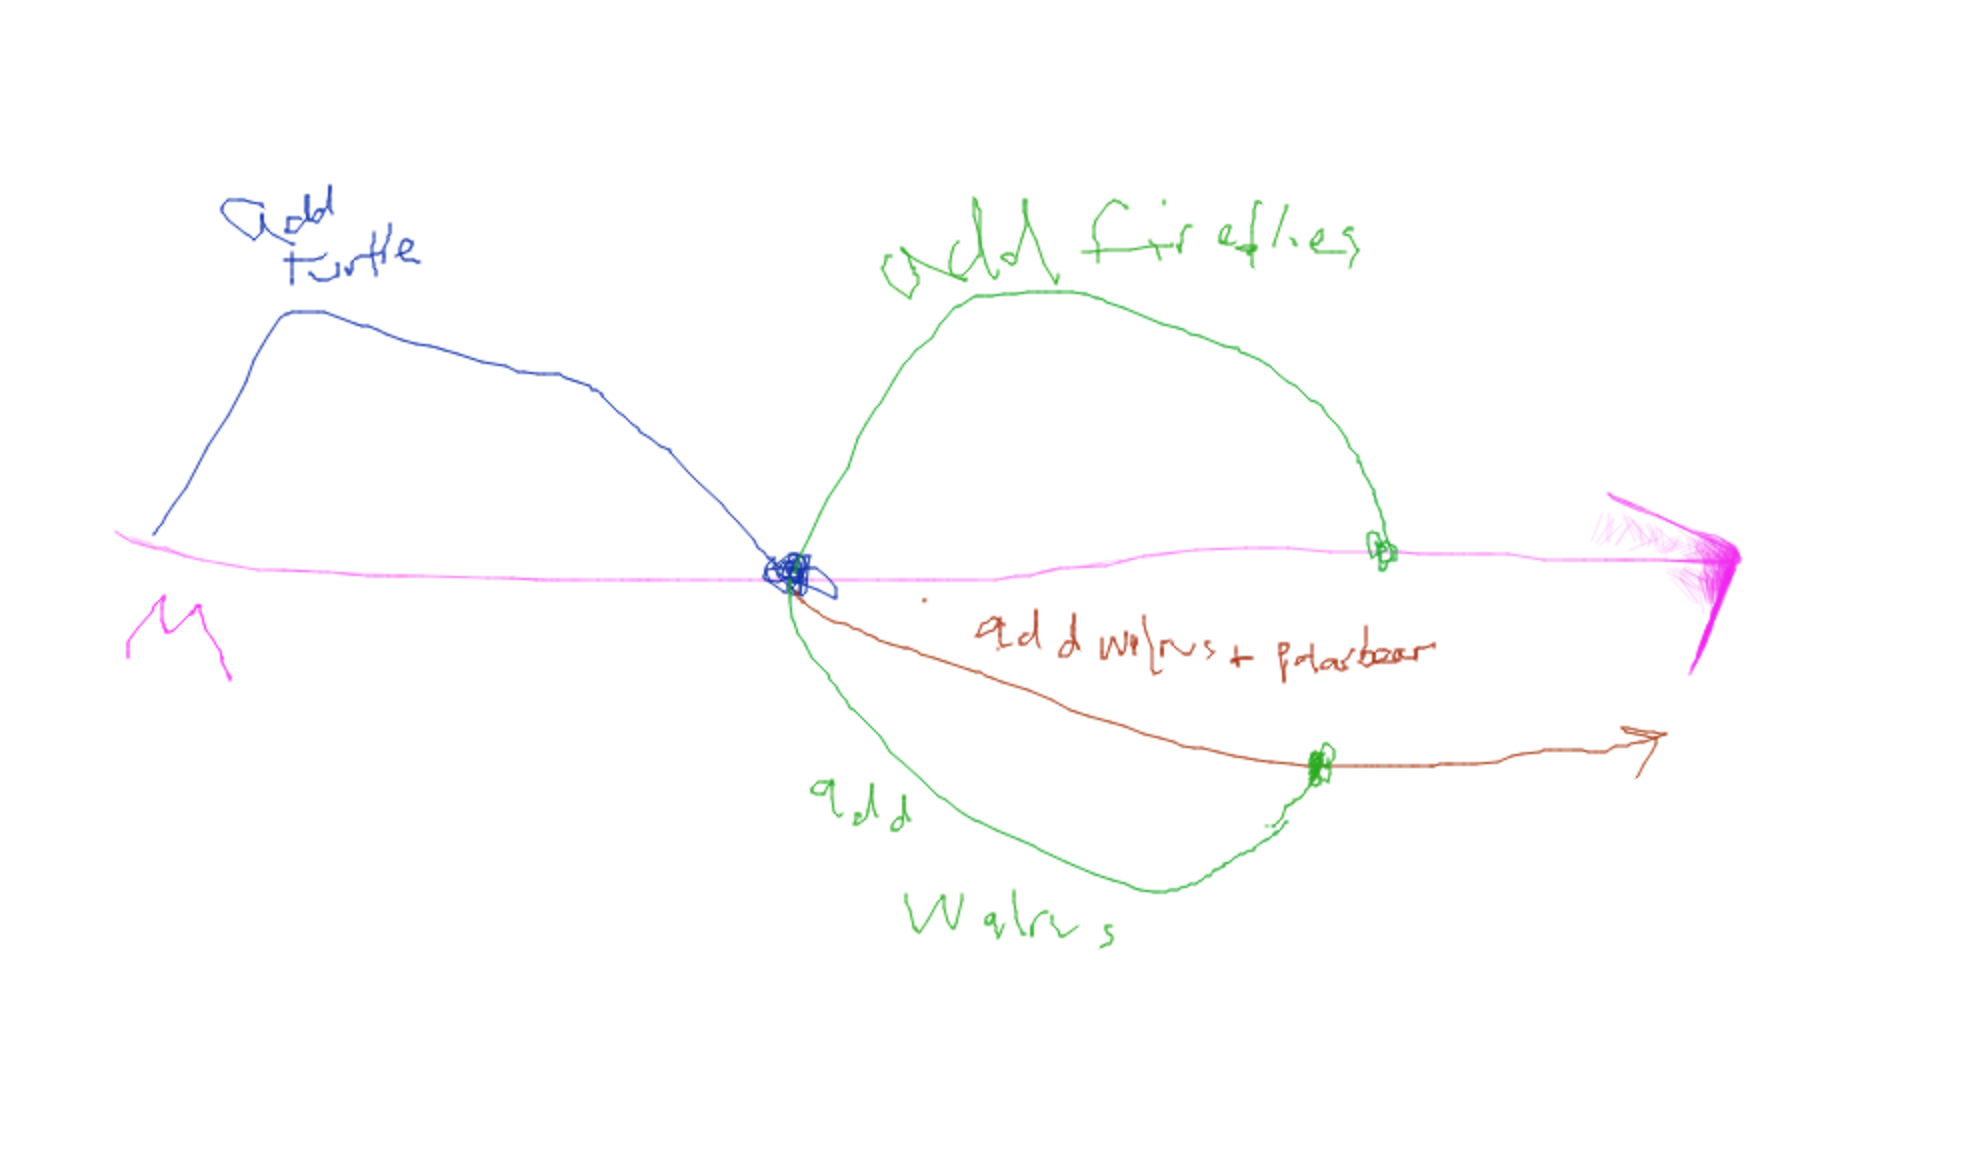 add
turtle
add fireflies
M
add walrus + polarbear
add
Walrus